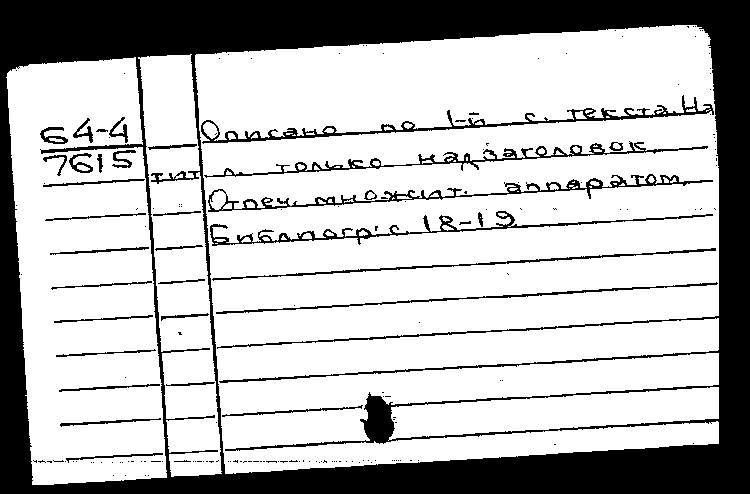 64-4
7615
Описано по 1-й с. текста. На
тит. л. только надзаголовок.
Отпеч. множит. аппаратом.
Библиогр: с. 18-19